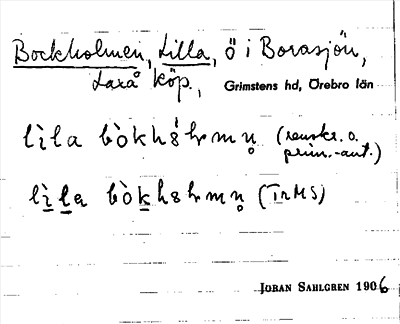 Bockholmen, Lilla, ö i Borasjön,
Laxå köp., Grimstens hd, Örebro län
lìla bòkhólmn̥ (renskr. o.
prim.-ant.)
lìla bòkholmn̥ (TrMS)
JORAN SAHLGREN 1906